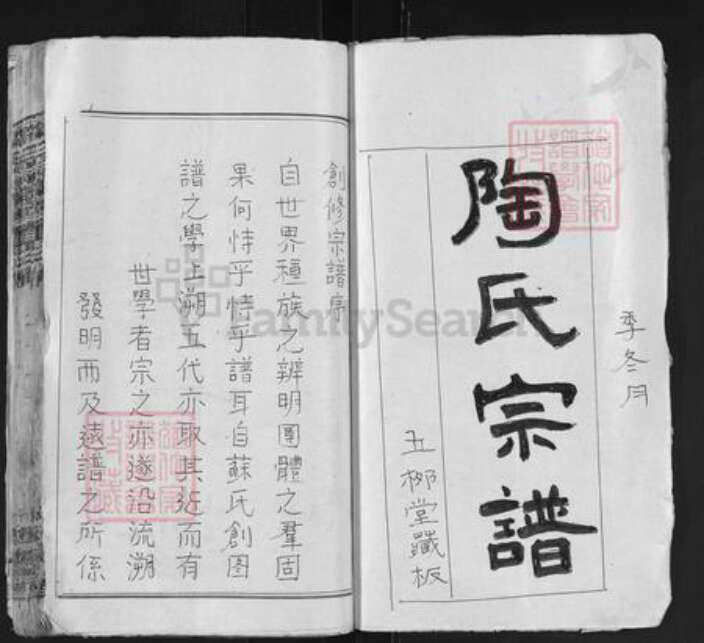 季冬月
陶氏宗譜
五栁堂藏板
創修宗譜序
自世界種族之辨明團體之羣固
果何恃乎恃乎譜耳自蘇氏創圖
譜之學上溯五代亦取其近而有
世學者宗之亦遂沿流溯
發明而及遠譜之所係
FamilySearch